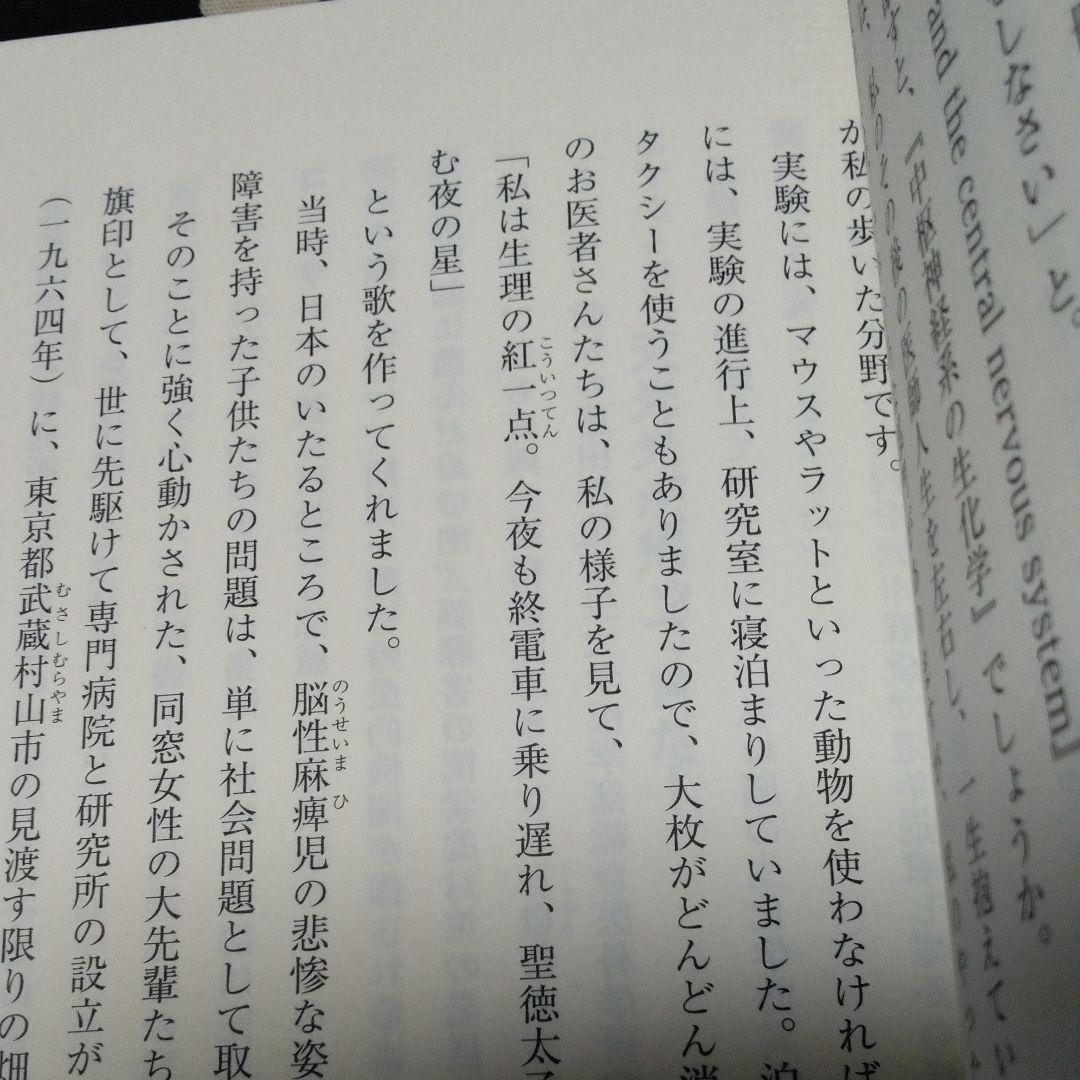 しなさい」と。
and the central nervous system』
『中枢神経系の生化学』でしょうか。
人生を左右し、一生抱えてい
が私の歩いた分野です。
実験には、マウスやラットといった動物を使わなければ
には、実験の進行上、研究室に寝泊まりしていました。泊
タクシーを使うこともありましたので、大枚がどんどん消
のお医者さんたちは、私の様子を見て、
「私は生理の紅一点。今夜も終電車に乗り遅れ、聖徳太子
こういってん
む夜の星」
という歌を作ってくれました。
当時、日本のいたるところで、脳性麻痺児の悲惨な姿
のうせいまひ
障害を持った子供たちの問題は、単に社会問題として取
そのことに強く心動かされた、同窓女性の大先輩たち
旗印として、世に先駆けて専門病院と研究所の設立が
（一九六四年）に、東京都武蔵村山市の見渡す限りの畑
むさしむらやま